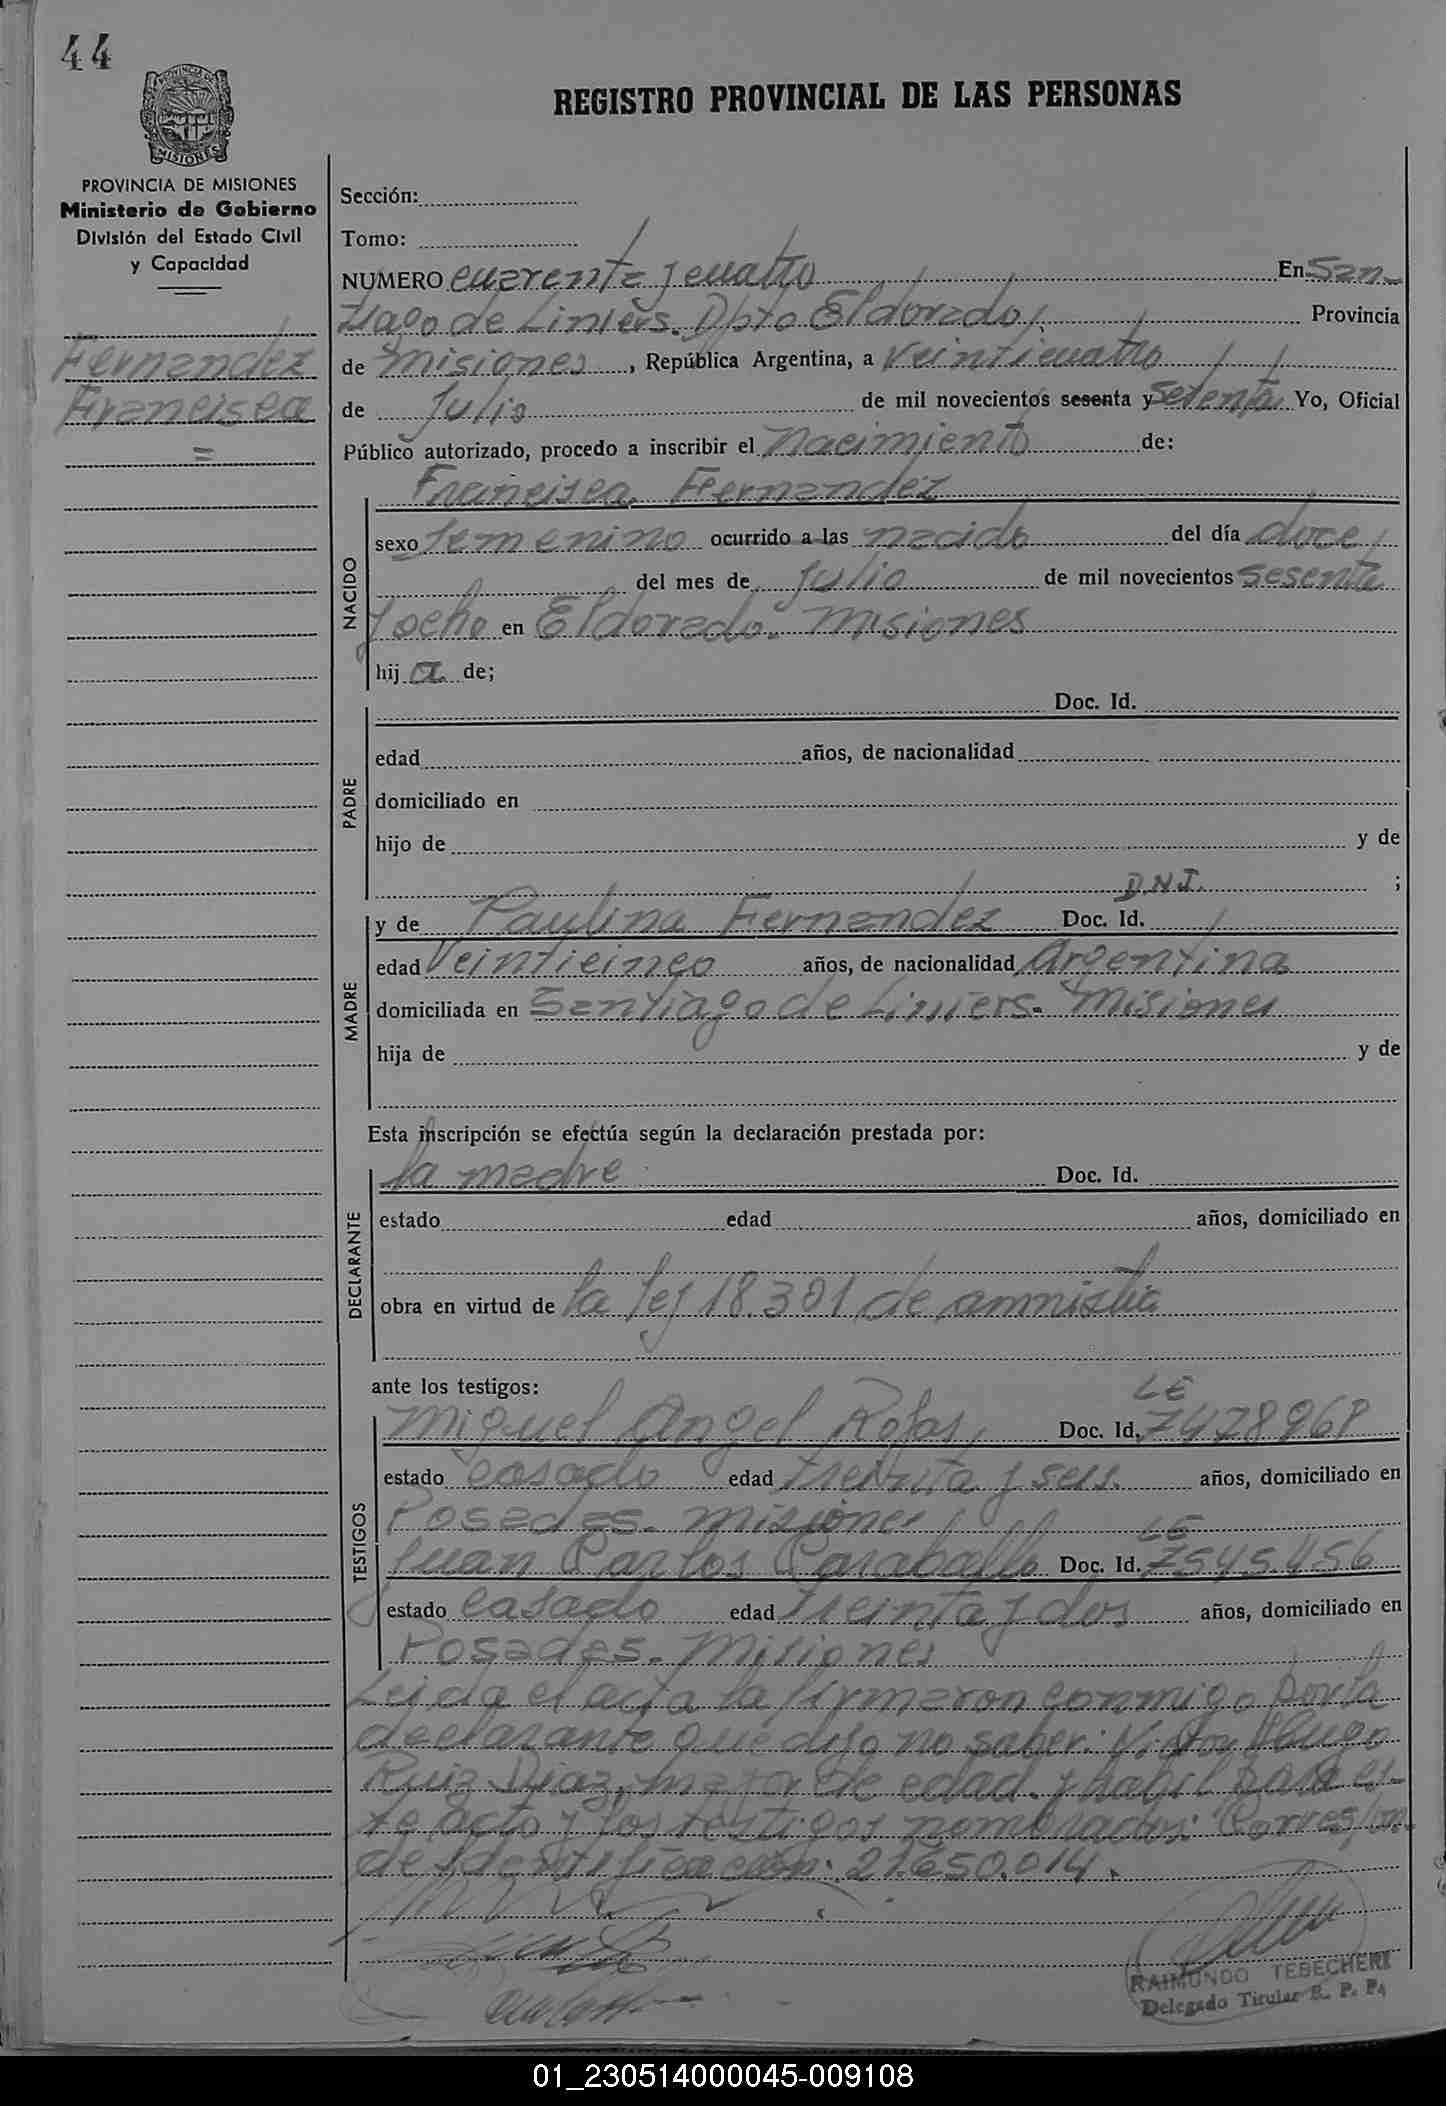 44
PROVINCIA DE
MISIONES
REGISTRO PROVINCIAL DE LAS PERSONAS
PROVINCIA DE MISIONES
Ministerio de Gobierno
División del Estado Civil
y Capacidad
Fernandez
Francisca
=
Sección:
Tomo:
NUMERO cuarenta y cuatro En San-
tiago de Liniers. Dpto Eldorado, Provincia
de Misiones, República Argentina, a veinticuatro
de Julio de mil novecientos sesenta y setenta Yo, Oficial
Público autorizado, procedo a inscribir el nacimiento de:
Francisca Fernandez
NACIDO
sexo femenino ocurrido a las nacida del día doce
del mes de Julio de mil novecientos sesenta
y ocho en Eldorado. Misiones
hij a de;
PADRE
Doc. Id.
edad años, de nacionalidad
domiciliado en
hijo de y de
D.N.I. ;
MADRE
y de Paulina Fernandez Doc. Id.
edad Veinticinco años, de nacionalidad Argentina
domiciliada en Santiago de Liniers. Misiones
hija de y de
Esta inscripción se efectúa según la declaración prestada por:
DECLARANTE
la madre Doc. Id.
estado edad años, domiciliado en
obra en virtud de la ley 18.301 de amnistia
ante los testigos:
TESTIGOS
LE
Miguel Angel Rojas, Doc. Id. 7478968
estado casado edad treinta y seis. años, domiciliado en
Posadas. Misiones
LE
Juan Carlos Caraballo Doc. Id. 7545456
estado casado edad treinta y dos años, domiciliado en
Posadas. Misiones
Leida el acta la firmaron conmigo por la
declarante que dijo no saber: Victor Hugo
Ruiz Diaz, mayor de edad y habil para es-
te acto y los testigos nombrados: Correspon-
de Identificacion: 21.650.014.
RAIMUNDO TEBECHERI
Delegado Titular R. P. P.
01_230514000045-009108